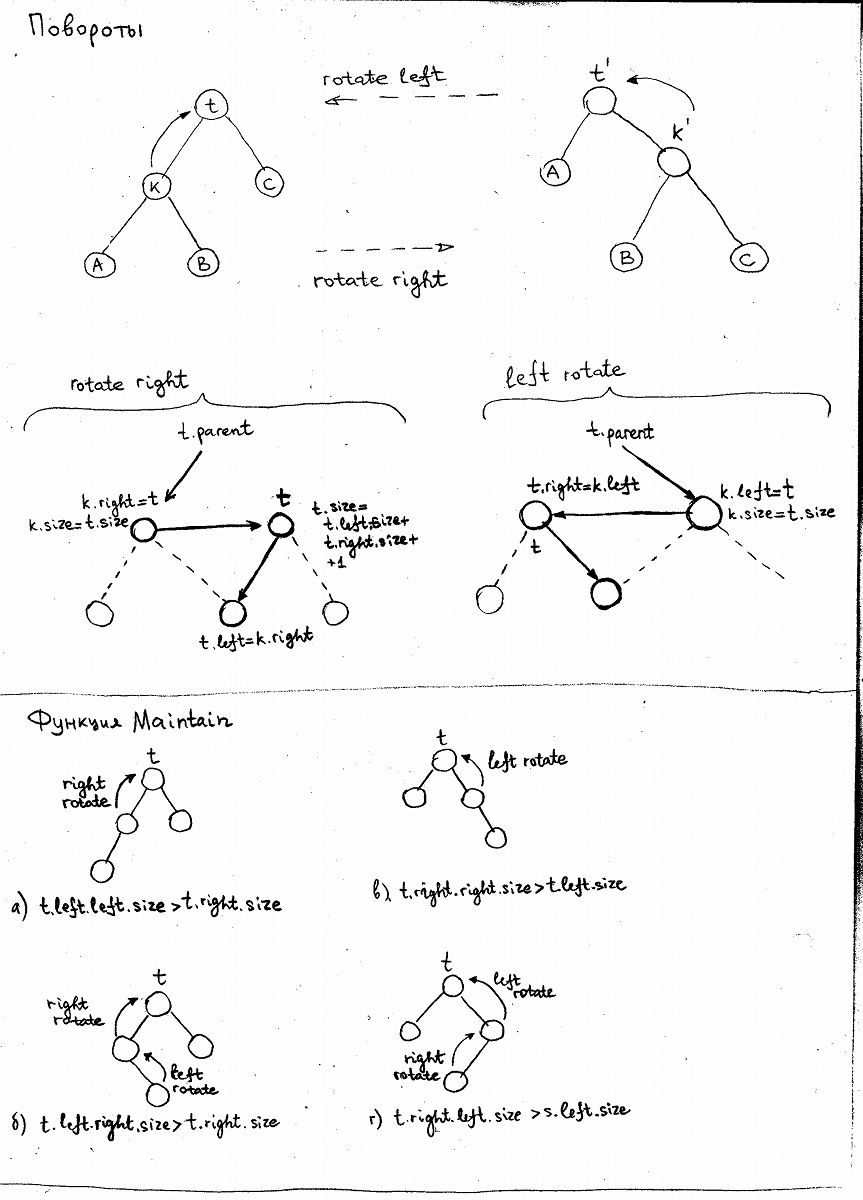 Повороты
rotate left
t
K
C
A
B
t'
k'
A
B
C
rotate right
rotate right
t.parent
k.right=t
k.size=t.size
t
t.size=
t.left.size+
t.right.size+
+1
t.left=k.right
left rotate
t.parent
t.right=k.left
k.left=t
k.size=t.size
t
Функция Maintain
t
right
rotate
а) t.left.left.size>t.right.size
t
left rotate
в) t.right.right.size>t.left.size
t
right
rotate
left
rotate
б) t.left.right.size>t.right.size
t
left
rotate
right
rotate
г) t.right.left.size >s.left.size